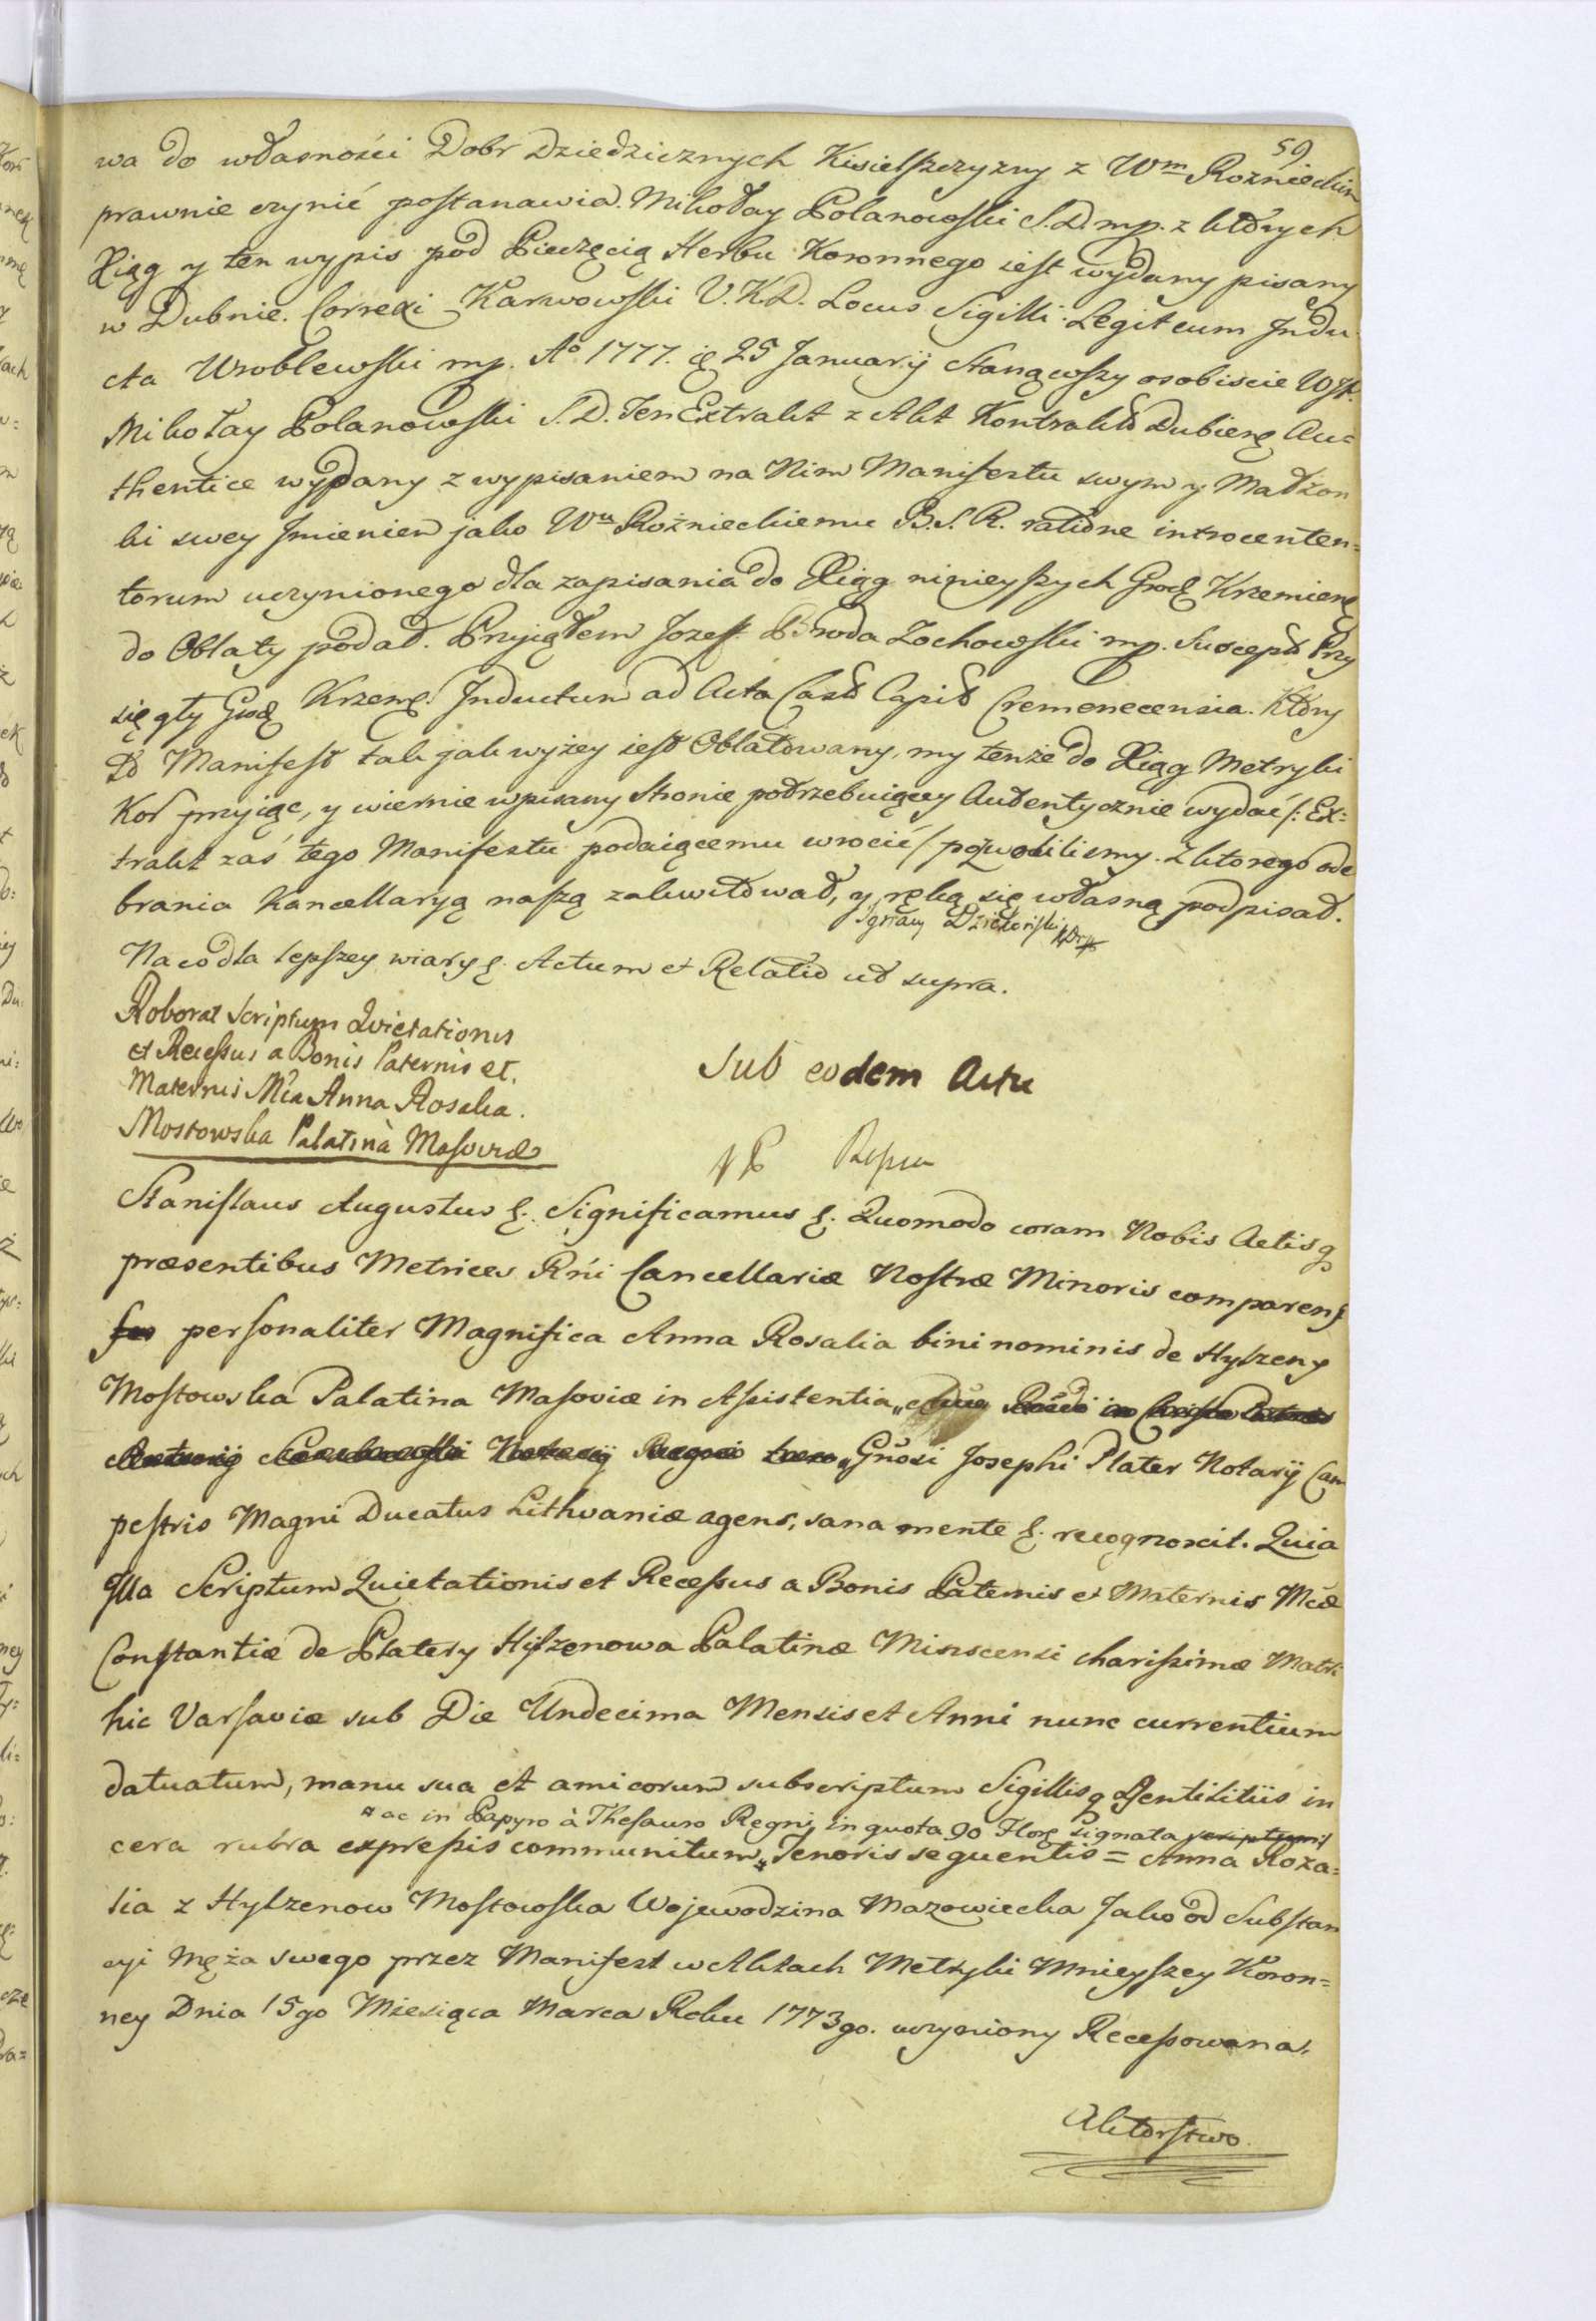 59
wa do własności Dobr Dziedzicznych Kisielszczyzny z Wm Rożnieckim
prawnie czynić postanawia. Mikołay Polanowski S.D. mp. z których
Xiąg y ten wypis pod Pieczęcią Herbu Koronnego iest wydany pisany
w Dubnie. Correxi Karwowski V.K.D. Locus Sigilli. Legit cum Indu
cta Wroblewski mp. Ao 1777. 25 Januarij Stanąwszy osobiscie
Mikołay Polanowski S.D. Ten Extrakt z Akt Kontraktt Dubienę Au=
thentice wydany z wypisaniem na Nim Manifestu swym y Małżon
ki swey Imieniem jako Wu Rożnieckiemu B.S.R. ratione introcenten=
torum uczynionego dla zapisania do Xiąg ninieyszych Grodz Krzemienę
do Oblaty podał. Przyiąłem Jozeff Broda Zochowski mp. Suscept Przy
sięgły Grodz Krzemę. Inductum ad Acta Castr Capit Cremenecensia. Który
to Manifest tak jak wyżey iest Oblatowany, my tenże do Xiąg Metryki
Kor przyiąc, y wiernie wpisany Stronie potrzebuiącey Autentycznie wydać /: Ex=
trakt zaś tego Manifestu podaiącemu wrocić / pozwoliliśmy. Z ktorego ode
brania Kancellaryą naszą zakwitował, y ręką się własną podpisał.
Ignacy
Na co dla lepszey wiary &. Actum et Relatio ut supra.
Roborat Scriptum Qvietationis
et Recessus a Bonis Paternis et
Maternis Mca Anna Rosalia
Mostowska Palatina Masoviæ
Sub eodem Actu
Stanislaus Augustus &. Significamus &. Quomodo coram Nobis Actisq
præsentibus Metrices Rni Cancellariæ Nostræ Minoris comparens
personaliter Magnifica Anna Rosalia bini nominis de Hylzeny
Mostowska Palatina Masoviæ in Assistentia
Gnosi Josephi Plater Notarij Cam
pestris Magni Ducatus Lithvaniæ agens, sana mente &. recognoscit. Quia
Illa Scriptum Quietationis et Recessus a Bonis Paternis et Maternis Mcæ
Constantiæ de Platery Hylzenowa Palatinæ Miniscensi charissimæ Matri
hic Varsaviæ sub Die Undecima Mensis et Anni nunc currentium
datuatum, manu sua et amicorum subscriptum Sigillisq Gentilitiis in
ac in Papyro à Thesauro Regni in quota 90 Flor signata scriptum
cera rubra expressis communitum Tenoris sequentis = Anna Roza=
lia z Hylzenow Mostowska Wojewodzina Mazowiecka Jako od Substan
cyi Męża swego przez Manifest w Aktach Metryki Mnieyszey Koron=
ney Dnia 15go Miesiąca Marca Roku 1773go. uczyniony Recessowana,
Aktorstwo